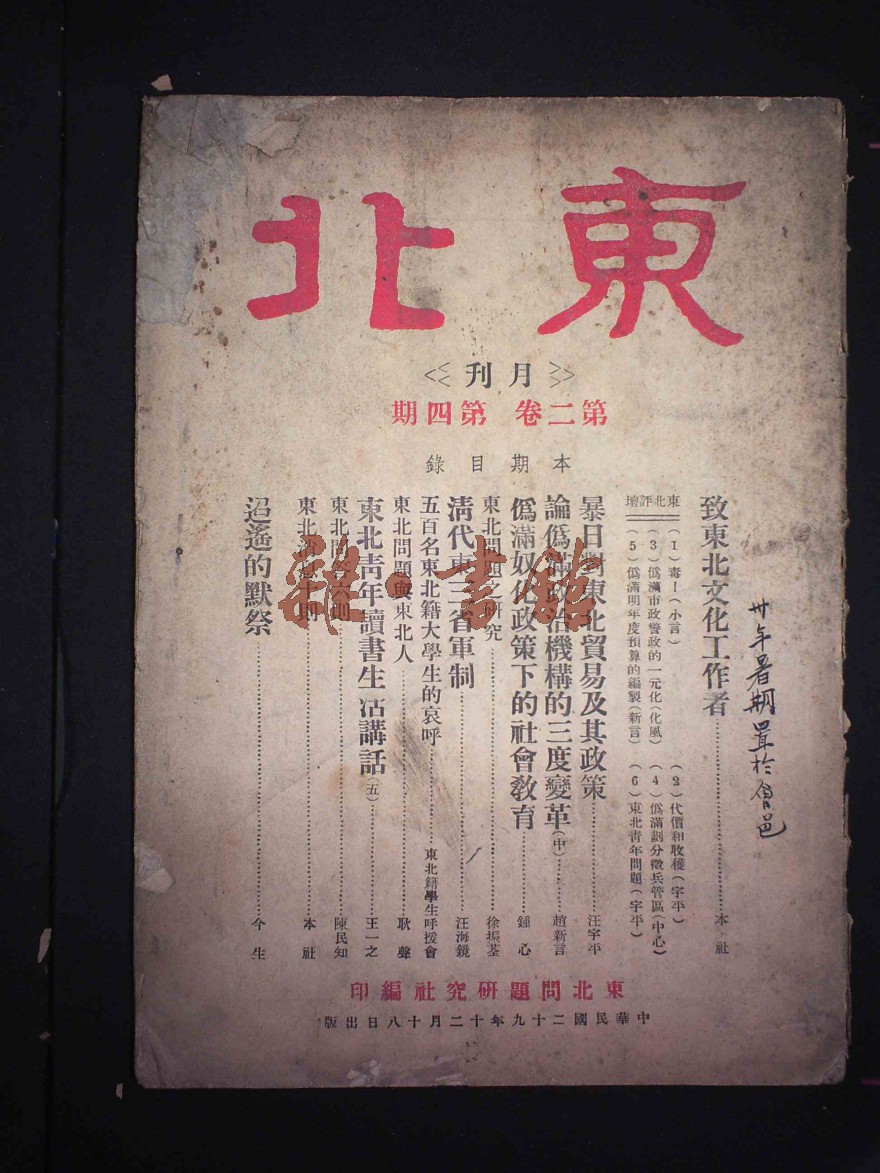 東北
月刊
第二卷 第四期
本期目錄
致東北文化工作者 本社
東北評壇
(1)毒!(小言)
(2)代價和收穫(字平)
(3)僞滿市政警政的一元化(化風)
(4)僞滿劃分徵兵管區(中心)
(5)僞滿明年度預算的編製(新言)
(6)東北青年問題(字平)
暴日對東北貿易及其政策 汪宇平
論僞滿政治機構的三度變革(中) 趙新言
僞滿奴化政策下的社會教育 鍾心
東北問題之研究 徐振荃
清代東三省軍制 汪海鏡
五百名東北籍大學生的哀呼 東北籍學生呼援會
東北問題與東北人 耿聲
東北青年讀書生活講話(五) 王一之
東北問答六則 陳民知
東北 十則 本社
迢遙的默祭 今生
東北問題研究社編印
中華民國二十九年十二月十八日出版
卅年暑期置於會邑
書館